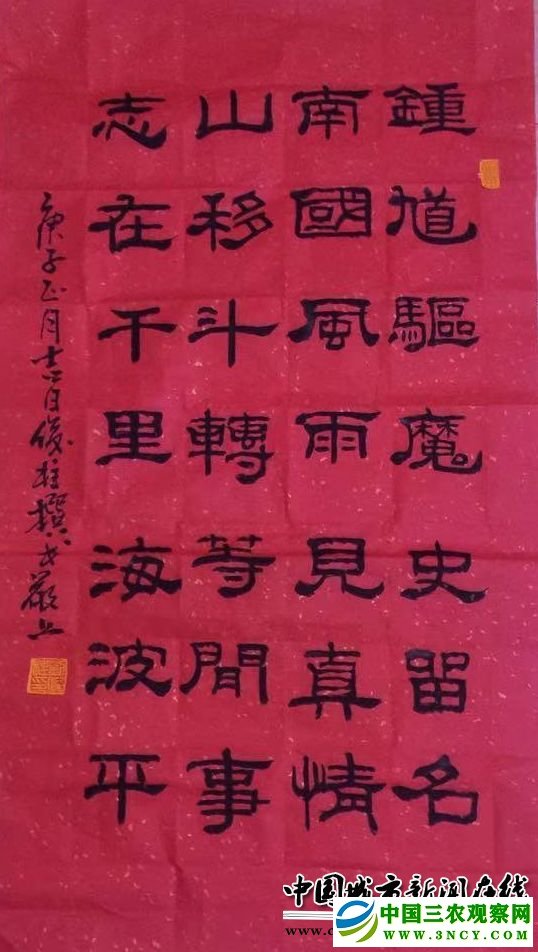 鍾馗驅魔史留名
南國風雨見真情
山移斗轉等閒事
志在千里海波平
庚子正月十六日俊柱撰
中国城市新闻在线
中国三农观察网
www.c
WWW.3NCY.COM